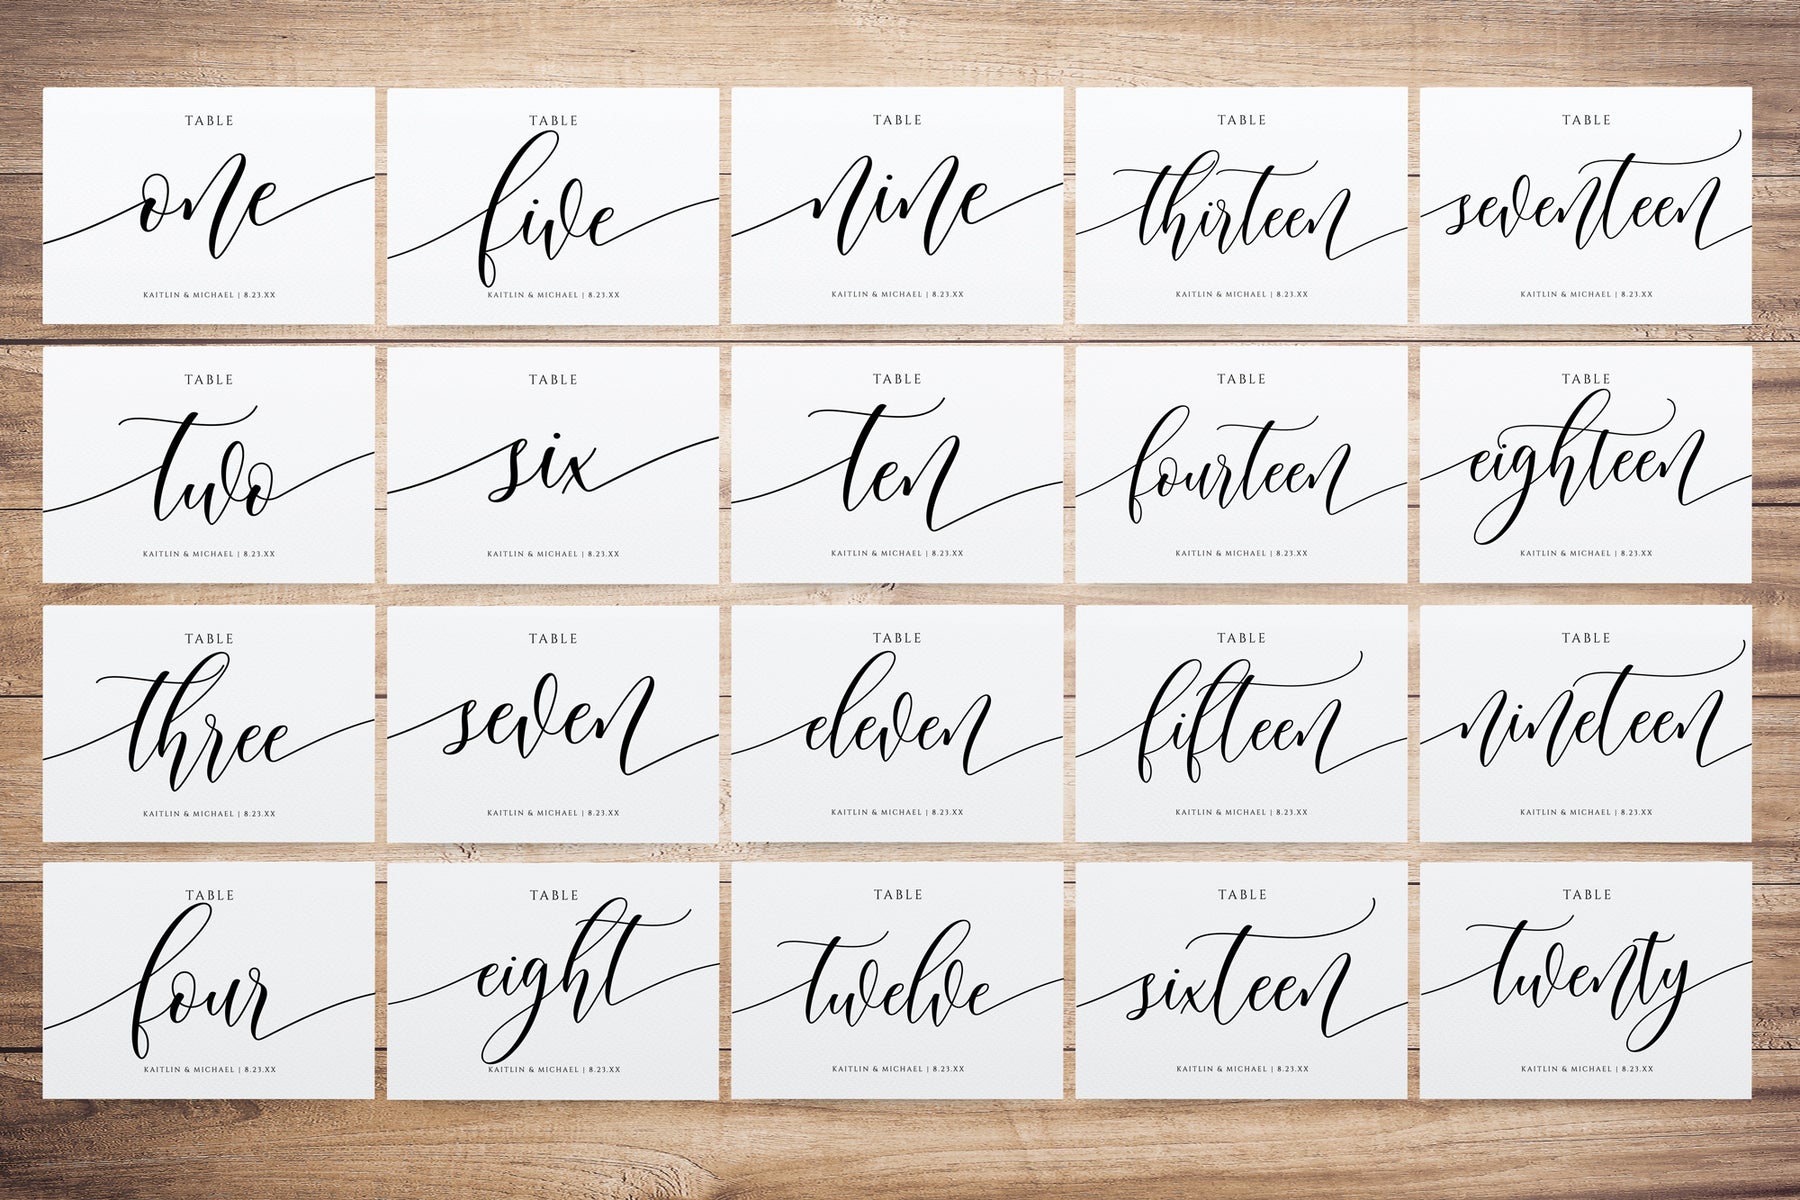 TABLE
one
KAITLIN & MICHAEL | 8.23.XX
TABLE
two
KAITLIN & MICHAEL | 8.23.XX
TABLE
three
KAITLIN & MICHAEL | 8.23.XX
TABLE
four
KAITLIN & MICHAEL | 8.23.XX
TABLE
five
KAITLIN & MICHAEL | 8.23.XX
TABLE
six
KAITLIN & MICHAEL | 8.23.XX
TABLE
seven
KAITLIN & MICHAEL | 8.23.XX
TABLE
eight
KAITLIN & MICHAEL | 8.23.XX
TABLE
nine
KAITLIN & MICHAEL | 8.23.XX
TABLE
ten
KAITLIN & MICHAEL | 8.23.XX
TABLE
eleven
KAITLIN & MICHAEL | 8.23.XX
TABLE
twelve
KAITLIN & MICHAEL | 8.23.XX
TABLE
thirteen
KAITLIN & MICHAEL | 8.23.XX
TABLE
fourteen
KAITLIN & MICHAEL | 8.23.XX
TABLE
fifteen
KAITLIN & MICHAEL | 8.23.XX
TABLE
sixteen
KAITLIN & MICHAEL | 8.23.XX
TABLE
seventeen
KAITLIN & MICHAEL | 8.23.XX
TABLE
eighteen
KAITLIN & MICHAEL | 8.23.XX
TABLE
nineteen
KAITLIN & MICHAEL | 8.23.XX
TABLE
twenty
KAITLIN & MICHAEL | 8.23.XX